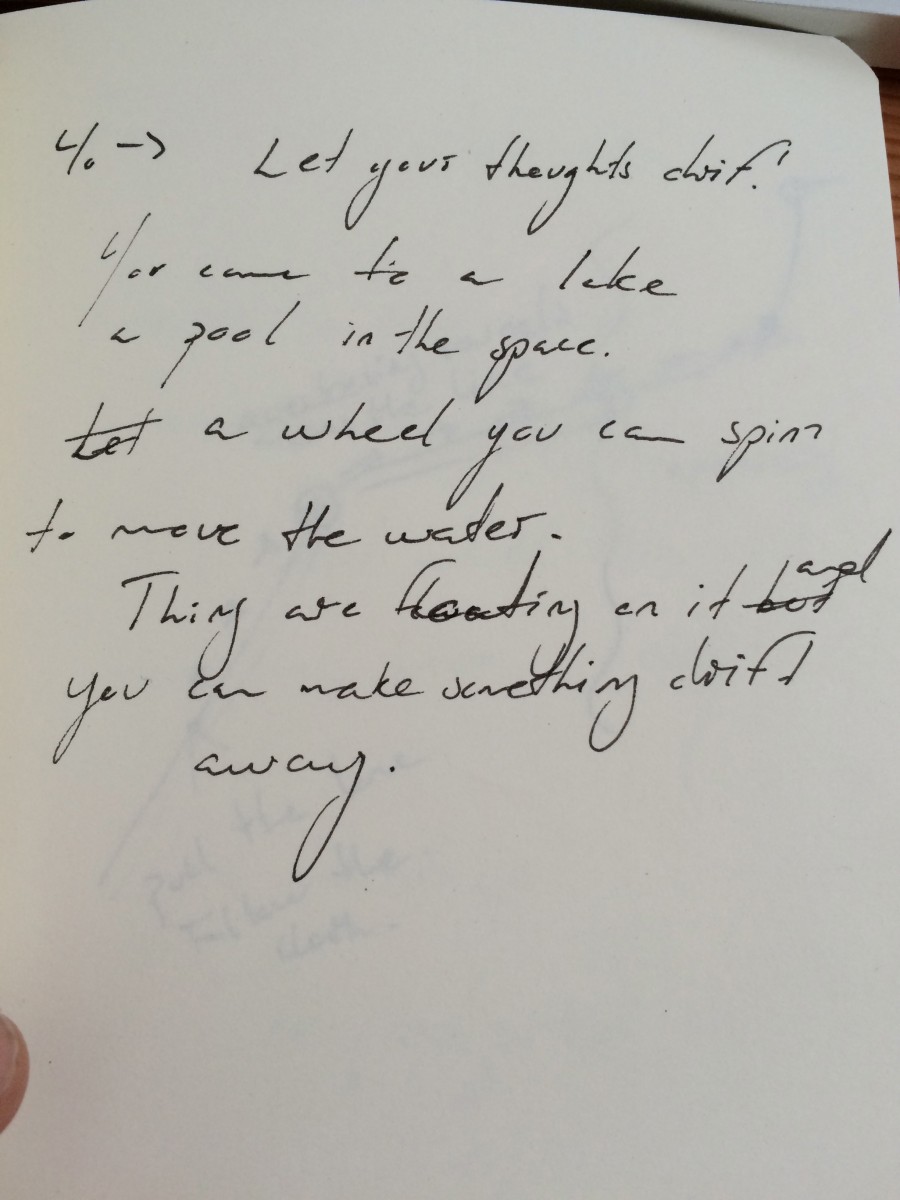 4. -> Let your thoughts drift!
You come to a lake
a pool in the space.
Let a wheel you can spin
to move the water.
Thing are floating on it but and
you can make something drift
away.
pull the
Follow the
cloth.